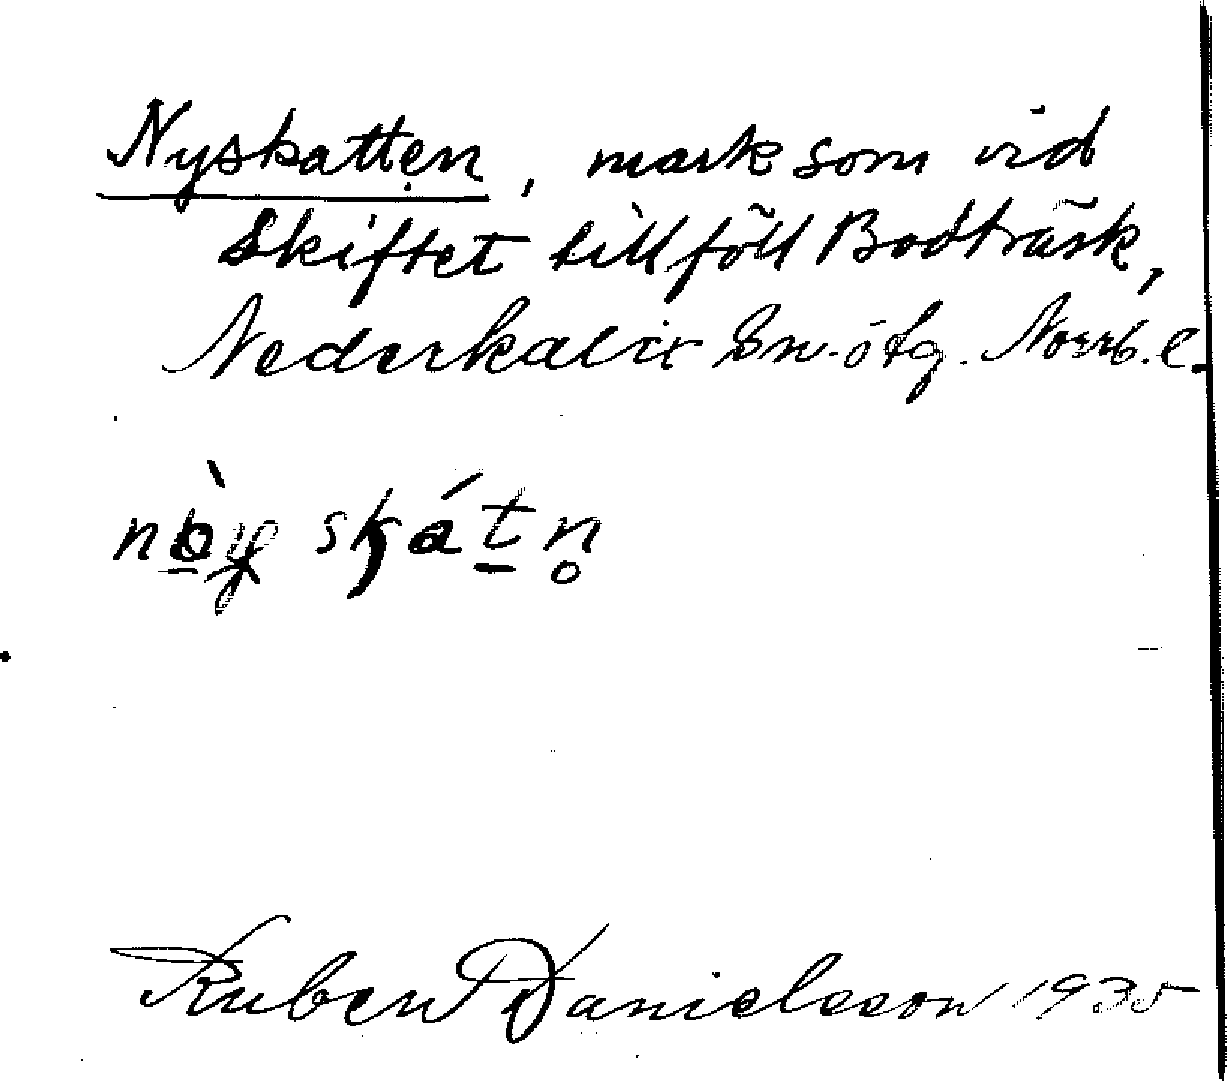 Nyskatten, mark som vid
Skiftet tillföll Bodträsk,
Nederkalix Sn. ö tg. Norrb. l.
skátn̥
Ruben Danielsson 1935